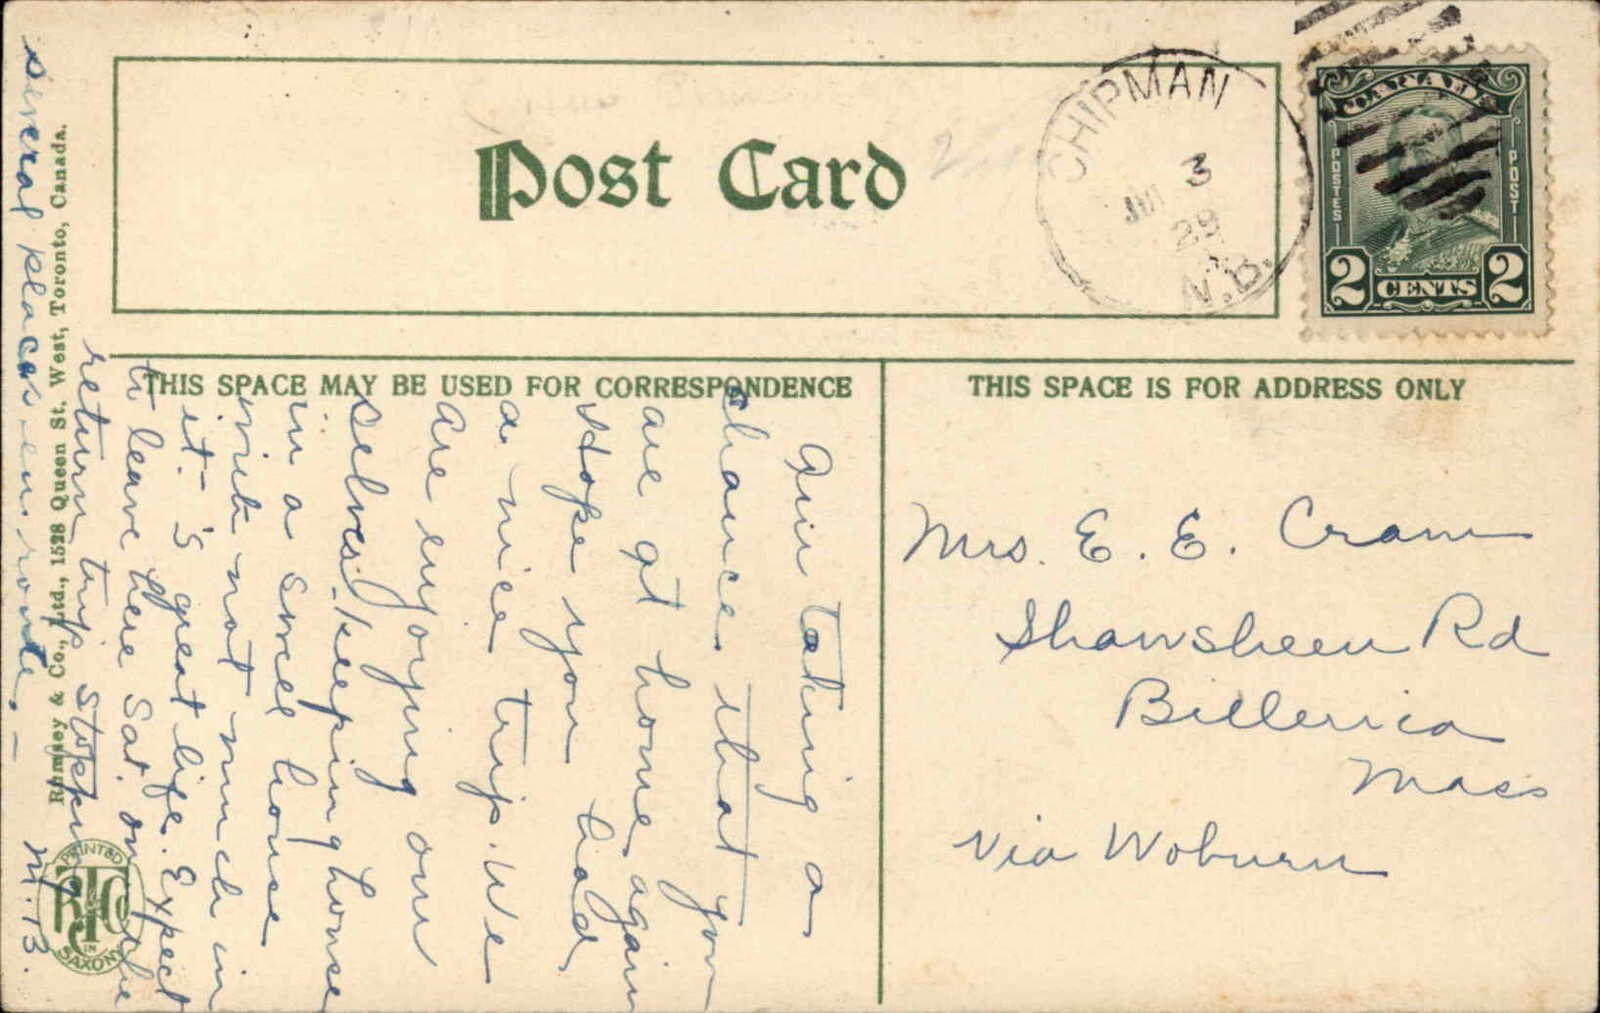 Post Card
CHIPMAN
3
29
N.B.
CANADA
POSTES
POST
2 CENTS 2
THIS SPACE MAY BE USED FOR CORRESPONDENCE
THIS SPACE IS FOR ADDRESS ONLY
Am taking a
chance that you
are at home again
Hope you had
a nice trip. We
are enjoying our
selves. keeping house
in a small house
with not much in
it. 'S great life. Expect
to leave here Sat. on the
return trip stopping
several places en route. –
M. B.
Mrs. E. E. Cram
Shawsheen Rd
Billerica
Mass
Via Woburn
Rumsey & Co., Ltd., 1528 Queen St. West, Toronto, Canada.
PRINTED
IN
SAXONY